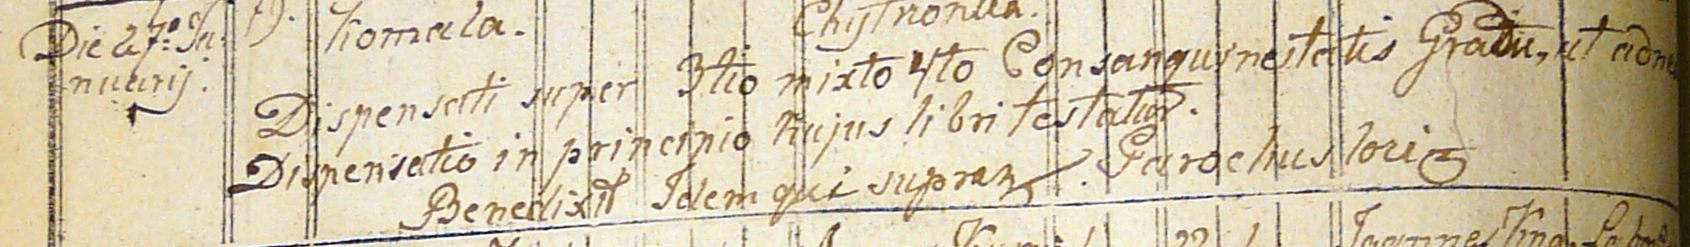 Die 27ª Ja- 19. Komala. Chytronka.
nuarij.
Dispensati super 3tio mixto 4to Consanguinestatis Gradu, ut adne
Dispensatio in principio hujus libri testatur.
Benedixit Idem qui supra. Parochus loci
Joannes